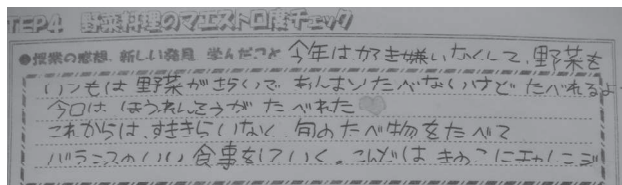 TEP4 野菜料理のマエストロ度チェック
●授業の感想、新しい発見、学んだこと 今年は好き嫌いなくして、野菜を
いつもは野菜がきらいであんまりたべないけどたべれるよ
今日はほうれんそうがたべれた
これからは、すききらいなく旬のたべ物をたべて
バランスのいい食事をしていく。こんどはきのこにチャレンジ